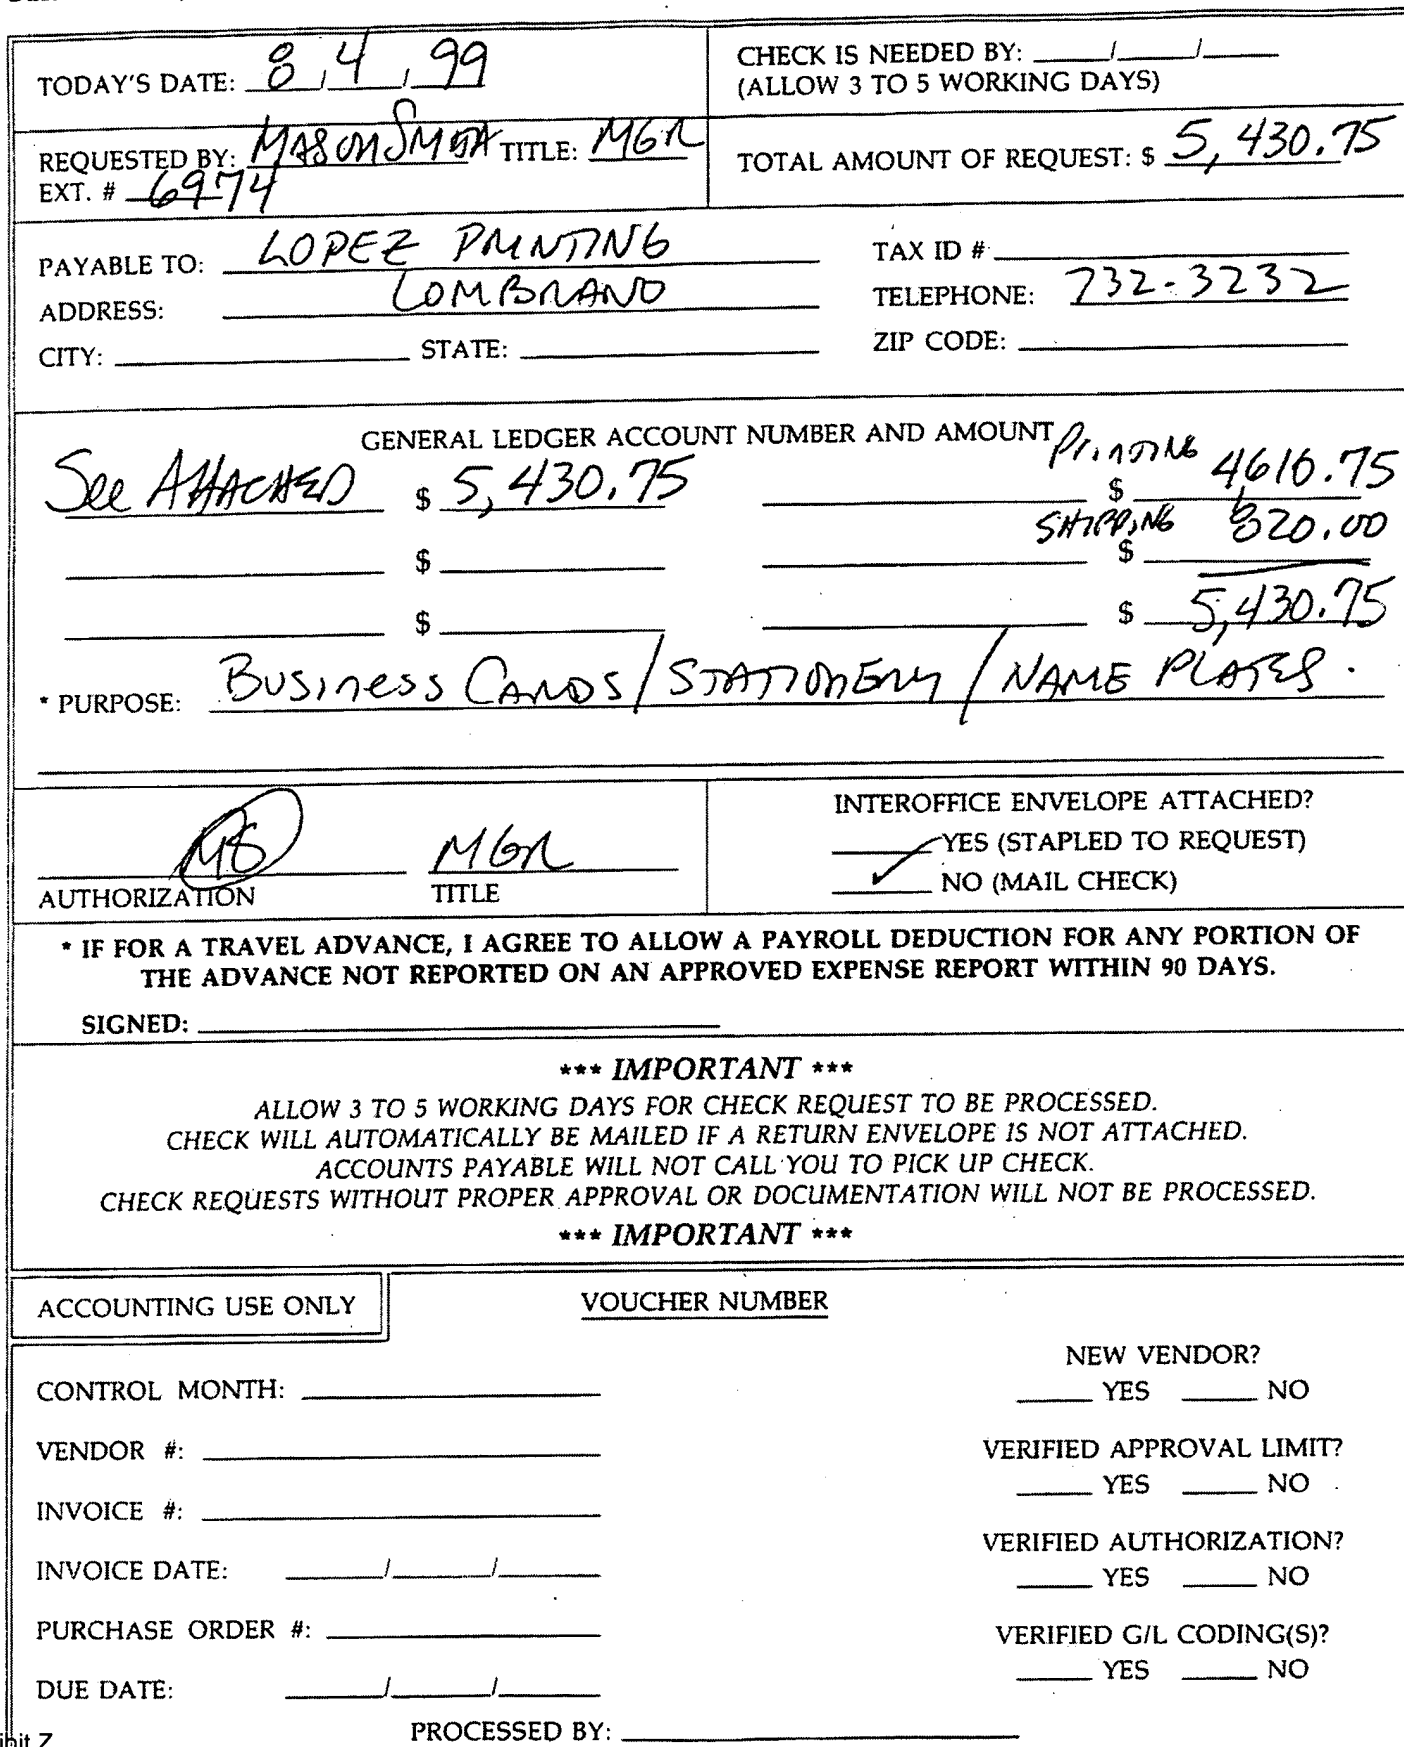 TODAY'S DATE: 8/4/99
CHECK IS NEEDED BY: ____/____/____
(ALLOW 3 TO 5 WORKING DAYS)
REQUESTED BY: MASON SMITH TITLE: MGR
EXT. # 6974
TOTAL AMOUNT OF REQUEST: $ 5,430.75
PAYABLE TO: LOPEZ PRINTING
TAX ID #
ADDRESS: LOMBRANO
TELEPHONE: 732-3232
CITY: STATE:
ZIP CODE:
GENERAL LEDGER ACCOUNT NUMBER AND AMOUNT
See ATTACHED $ 5,430.75 PrintING $ 4610.75
$ SHIPPING $ 820.00
$ $ 5,430.75
* PURPOSE: BUSIness CARDS/STATIONERY/NAME PLATES.
MS MGR
AUTHORIZATION TITLE
INTEROFFICE ENVELOPE ATTACHED?
YES (STAPLED TO REQUEST)
✓ NO (MAIL CHECK)
* IF FOR A TRAVEL ADVANCE, I AGREE TO ALLOW A PAYROLL DEDUCTION FOR ANY PORTION OF
THE ADVANCE NOT REPORTED ON AN APPROVED EXPENSE REPORT WITHIN 90 DAYS.
SIGNED:
*** IMPORTANT ***
ALLOW 3 TO 5 WORKING DAYS FOR CHECK REQUEST TO BE PROCESSED.
CHECK WILL AUTOMATICALLY BE MAILED IF A RETURN ENVELOPE IS NOT ATTACHED.
ACCOUNTS PAYABLE WILL NOT CALL YOU TO PICK UP CHECK.
CHECK REQUESTS WITHOUT PROPER APPROVAL OR DOCUMENTATION WILL NOT BE PROCESSED.
*** IMPORTANT ***
ACCOUNTING USE ONLY
VOUCHER NUMBER
NEW VENDOR?
CONTROL MONTH:
YES NO
VENDOR #:
VERIFIED APPROVAL LIMIT?
YES NO
INVOICE #:
VERIFIED AUTHORIZATION?
INVOICE DATE: ____/____/____
YES NO
PURCHASE ORDER #:
VERIFIED G/L CODING(S)?
YES NO
DUE DATE: ____/____/____
PROCESSED BY: